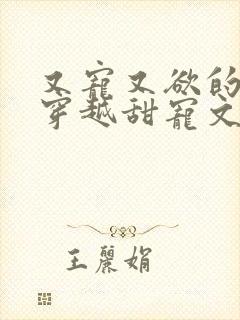 又寵又欲的
穿越甜寵文
王麗娟